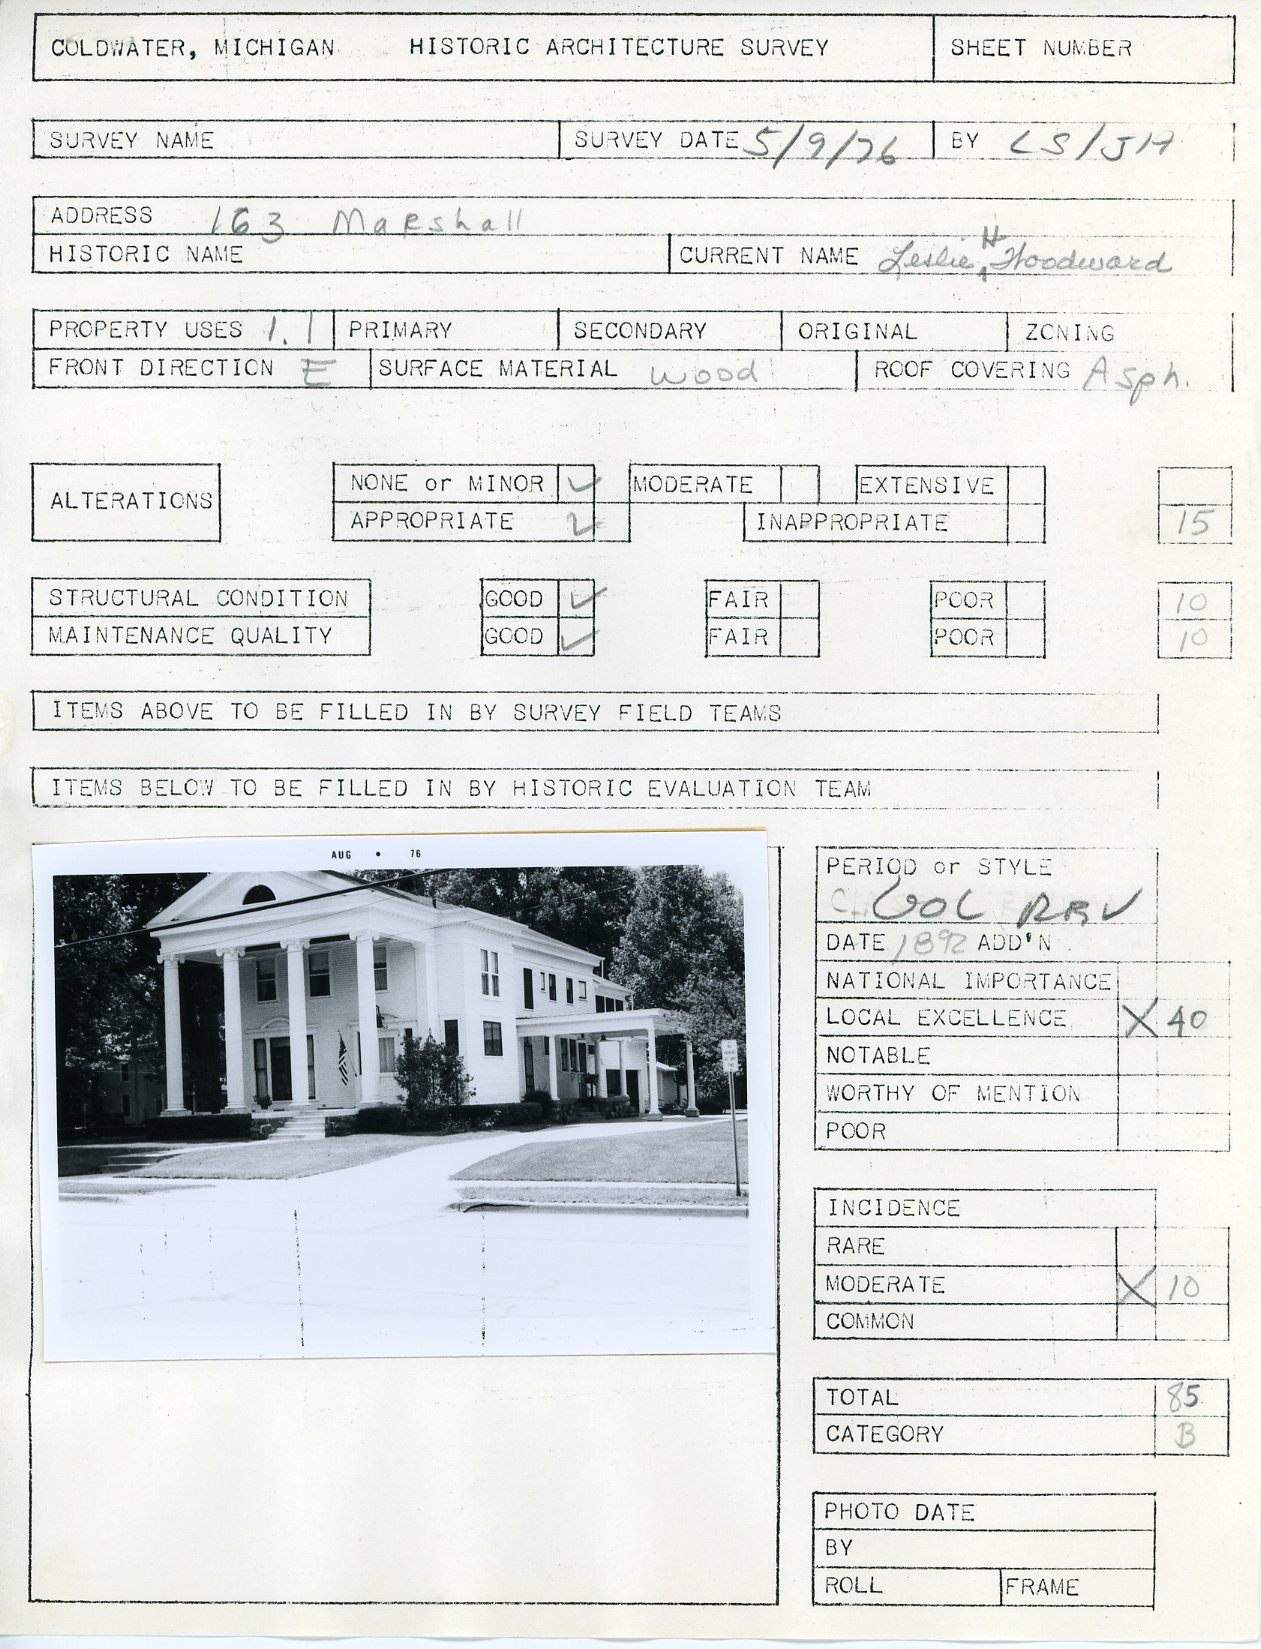 COLDWATER, MICHIGAN HISTORIC ARCHITECTURE SURVEY SHEET NUMBER
SURVEY NAME SURVEY DATE 5/9/76 BY LS/JH
ADDRESS 163 Marshall
HISTORIC NAME CURRENT NAME Leslie H Woodward
PROPERTY USES 1.1 PRIMARY SECONDARY ORIGINAL ZONING
FRONT DIRECTION E SURFACE MATERIAL wood ROOF COVERING Asph.
ALTERATIONS
NONE or MINOR ✓ MODERATE EXTENSIVE
APPROPRIATE INAPPROPRIATE 15
STRUCTURAL CONDITION GOOD ✓ FAIR POOR 10
MAINTENANCE QUALITY GOOD ✓ FAIR POOR 10
ITEMS ABOVE TO BE FILLED IN BY SURVEY FIELD TEAMS
ITEMS BELOW TO BE FILLED IN BY HISTORIC EVALUATION TEAM
AUG • 76
PERIOD or STYLE
COL REV
DATE 1892 ADD'N
NATIONAL IMPORTANCE
LOCAL EXCELLENCE X 40
NOTABLE
WORTHY OF MENTION
POOR
INCIDENCE
RARE
MODERATE X 10
COMMON
TOTAL 85
CATEGORY B
PHOTO DATE
BY
ROLL FRAME